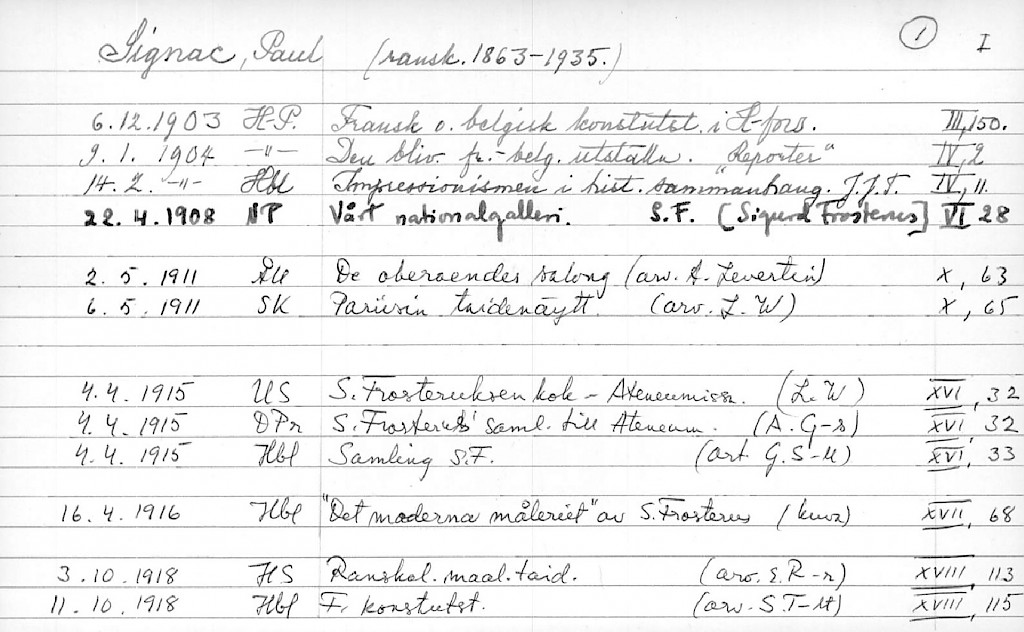 Signac, Paul (ransk. 1863-1935.) 1 I
6.12.1903 H-P. Fransk o. belgisk konstutst. i H-fors. III, 150.
9. 1. 1904 -"- Den bliv. fr.-belg. utställn. "Reporter" IV, 2
14. 2. -"- Hbl Impressionismen i hist. sammanhang. J.J.T. IV, 11.
22. 4. 1908 NP Vårt nationalgalleri. S.F. [Sigurd Frosterus] VI 28
2. 5. 1911 ÅU De oberoendes salong (arv. A. Levertin) X, 63
6. 5. 1911 SK Pariisin taidenäytt. (arv. L. W) X, 65
4. 4. 1915 US S. Frosteruksen kok - Ateneumissa. (L. W) XVI, 32
4. 4. 1915 DPr S. Frosterus' saml. till Ateneum. (A. G-s) XVI, 32
4. 4. 1915 Hbl Samling S.F. (art. G. S-M) XVI, 33
16. 4. 1916 Hbl "Det moderna måleriet" av S. Frosterus (kuva) XVII, 68
3. 10. 1918 HS Ranskal. maal. taid. (arv. E. R-r) XVIII, 113
11. 10. 1918 Hbl F. konstutst. (arv. S. T-M) XVIII, 115